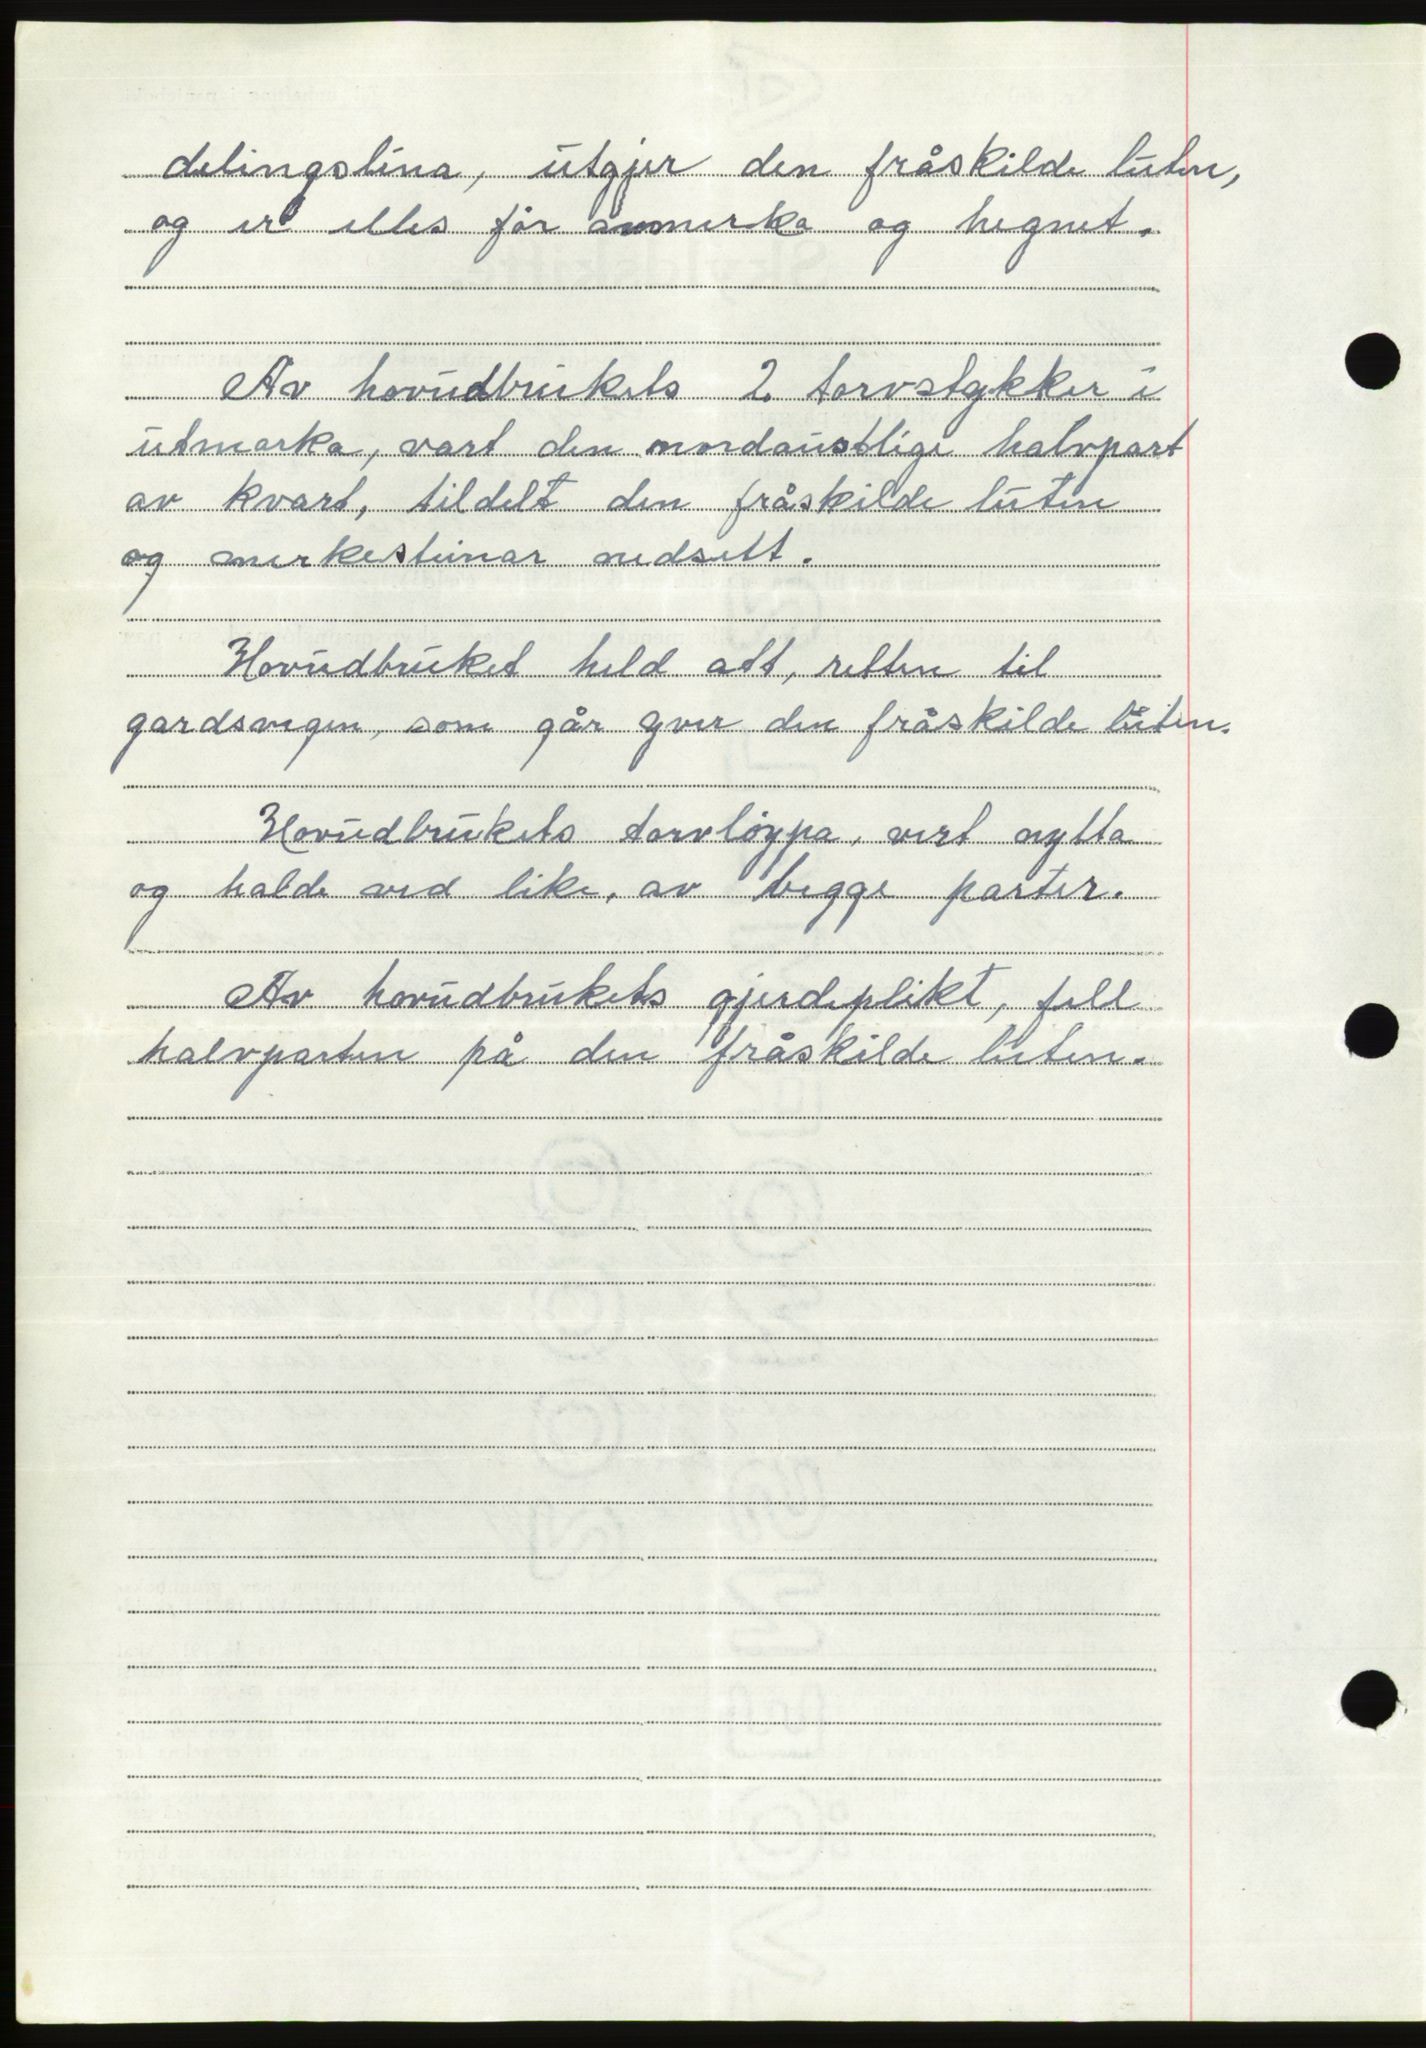 delingslina, utgjer den fråskilde luten,
og er elles før avmerka og hegnet.
Av hovudbrukets 2 torvstykker i
utmarka, vart den nordaustlige halvpart
av kvart, tildelt den fråskilde luten
og merkesteinar nedsett.
Hovudbruket held att, retten til
gardsvegen, som går yver den fråskilde luten.
Hovudbrukets torvløypa, vert nytta
og halde ved like, av begge parter.
Av hovudbrukets gjerdeplikt, fell
halvparten på den fråskilde luten.